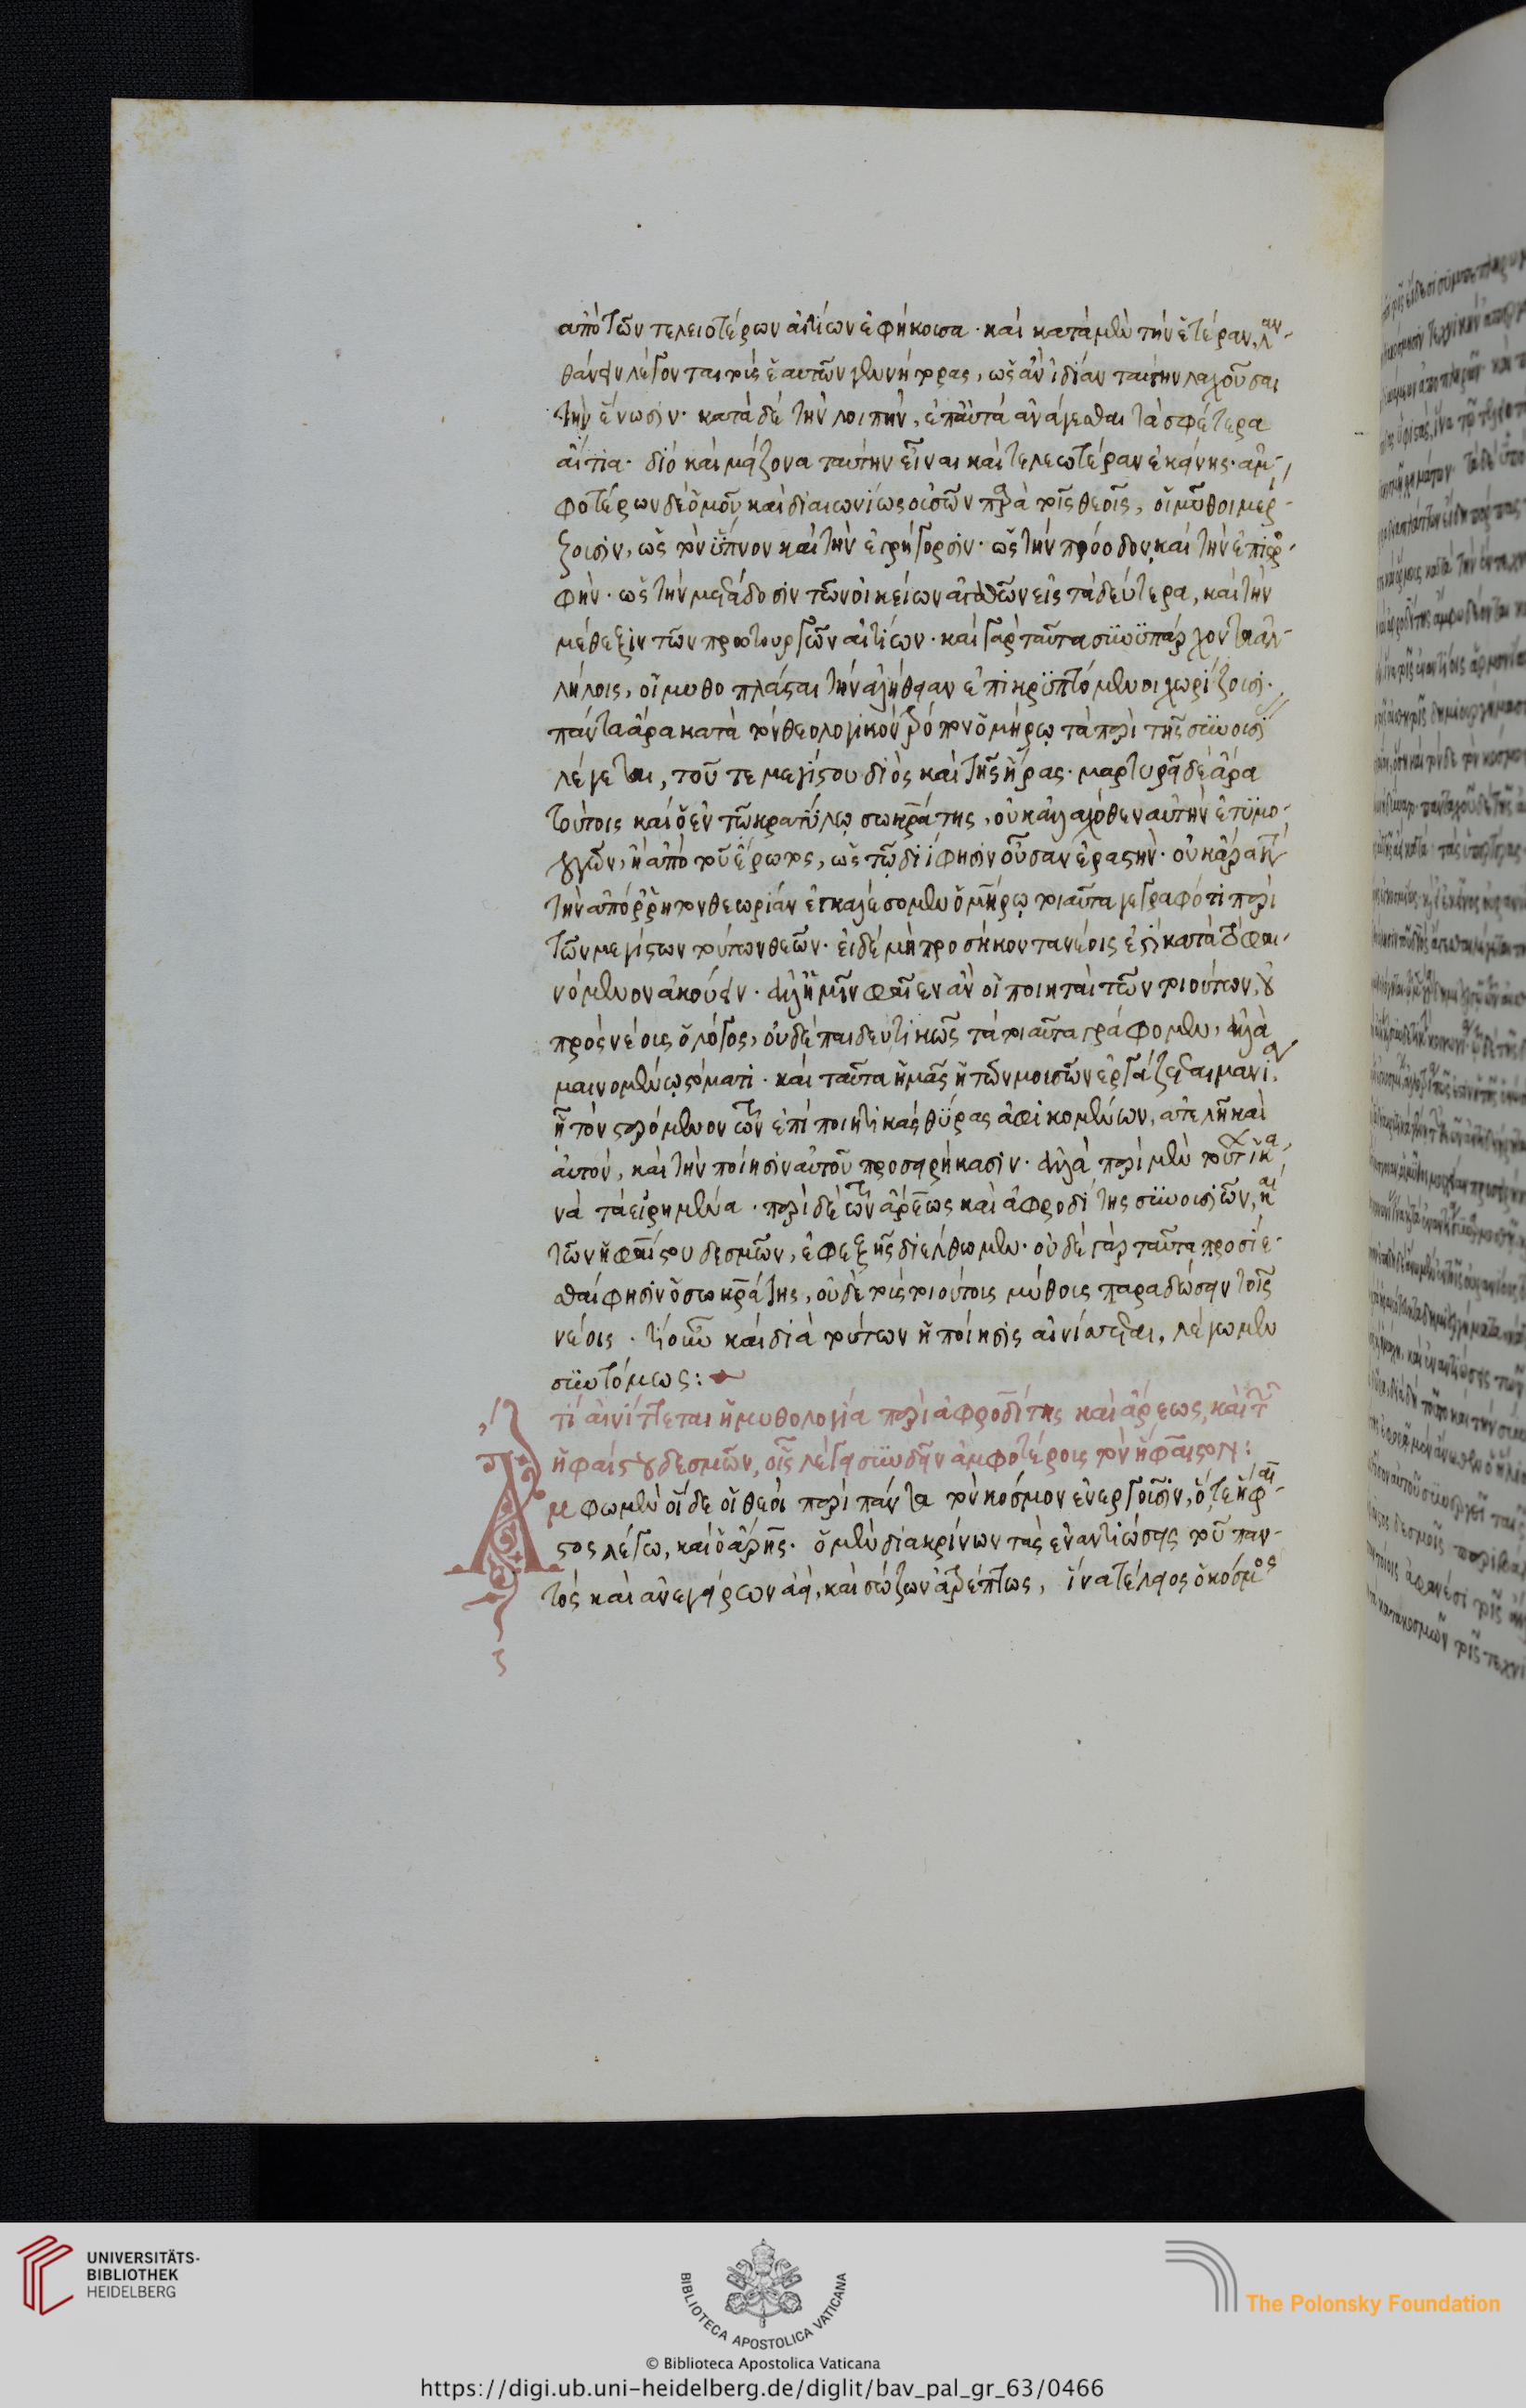 ἀπὸ τῶν τελειοτέρων αἰτίων ἐφήκουσα. καὶ κατὰ μὲν τὴν ἑτέραν, λαν-
θάνειν λέγονται τοὺς ἑαυτῶν γεννήτορας, ὡς ἂν ἰδίαν ταύτην λαχοῦσαι
τὴν ἕνωσιν. κατὰ δὲ τὴν λοιπὴν, ἐπ' αὐτὰ ἀνάγεσθαι τὰ σφέτερα
αἴτια. διὸ καὶ μείζονα ταύτην εἶναι καὶ τελεωτέραν ἐκείνης. ἀμ-
φοτέρων δὲ ὁμοῦ καὶ διαιωνίως οὐσῶν παρὰ τοῖς θεοῖς, οἱ μῦθοι μερί-
ζουσιν, ὡς τὸν ὕπνον καὶ τὴν ἐγρήγορσιν. ὡς τὴν πρόοδον, καὶ τὴν ἐπιστρο-
φήν. ὡς τὴν μετάδοσιν τῶν οἰκείων ἀγαθῶν εἰς τὰ δεύτερα, καὶ τὴν
μέθεξιν τῶν πρωτουργῶν αἰτίων. καὶ γὰρ ταῦτα συνυπάρχοντα ἀλ-
λήλοις, οἱ μυθοπλάσται τὴν ἀλήθειαν ἐπικρυπτόμενοι χωρίζουσι.
πάντα ἄρα κατὰ τὸν θεολογικὸν τρόπον ὁμήρῳ τὰ περὶ τῆς συνουσί
λέγεται, τοῦ τε μεγίστου διὸς καὶ τῆς ἥρας. μαρτυρεῖ δὲ ἄρα
τούτοις καὶ ὁ ἐν τῷ κρατύλῳ σωκράτης, οὐκ ἀλλαχόθεν αὐτὴν ἐτυμο-
λογῶν, ἢ ἀπὸ τοῦ ἔρωτος, ὡς τῷ διί φησιν οὖσαν ἐραστήν. οὐκ ἄρα κατὰ
τὴν ἀπόρρητον θεωρίαν ἐγκαλέσομεν ὁμήρῳ τοιαῦτα γεγραφότι περὶ
τῶν μεγίστων τούτων θεῶν. εἰ δὲ μὴ προσήκοντα νέοις ἐστὶ κατὰ τὸ φαι-
νόμενον ἀκούειν. ἀλλ' ἡμῖν φαῖεν ἂν οἱ ποιηταὶ τῶν τοιούτων, οὐ
πρὸς νέους ὁ λόγος, οὐδὲ παιδευτικῶς τὰ τοιαῦτα γράφομεν, ἀλλὰ
μαινομένῳ στόματι. καὶ ταῦτα ἡμᾶς ἡ τῶν μουσῶν ἐργάζεται μανία,
ἧς τὸν στερόμενον τῶν ἐπὶ ποιητικὰς θύρας ἀφικομένων, ἀτελῆ καὶ
αὐτὸν, καὶ τὴν ποίησιν αὐτοῦ προσειρήκασιν. ἀλλὰ περὶ μὲν τούτων ἱκα-
νὰ τὰ εἰρημένα. περὶ δὲ τῶν ἄρεως καὶ ἀφροδίτης συνουσιῶν, καὶ
τῶν ἡφαίστου δεσμῶν, ἐφεξῆς διέλθωμεν. οὐδὲ γὰρ ταῦτα προσίε-
σθαί φησιν ὁ σωκράτης, οὐδὲ τοὺς τοιούτους μύθους παραδώσειν τοῖς
νέοις. τί οὖν καὶ διὰ τούτων ἡ ποίησις αἰνίττεται, λέγωμεν
συντόμως:
τί αἰνίττεται ἡ μυθολογία περὶ ἀφροδίτης καὶ ἄρεως, καὶ τῶν
ἡφαίστου δεσμῶν, οἷς λέγει συνδεῖν ἀμφοτέρους τὸν ἥφαιστον:
Ἄμφω μὲν οἵδε οἱ θεοὶ περὶ πάντα τὸν κόσμον ἐνεργοῦσιν, ὅ τε ἥφαι-
στος λέγω, καὶ ὁ ἄρης. ὁ μὲν διακρίνων τὰς ἐναντιώσεις τοῦ παν-
τὸς καὶ ἀνεγείρων ἀεὶ, καὶ σώζων ἀτρέπτως, ἵνα τέλειος ὁ κόσμος
UNIVERSITÄTS-
BIBLIOTHEK
HEIDELBERG
BIBLIOTECA APOSTOLICA VATICANA
The Polonsky Foundation
© Biblioteca Apostolica Vaticana
https://digi.ub.uni-heidelberg.de/diglit/bav_pal_gr_63/0466